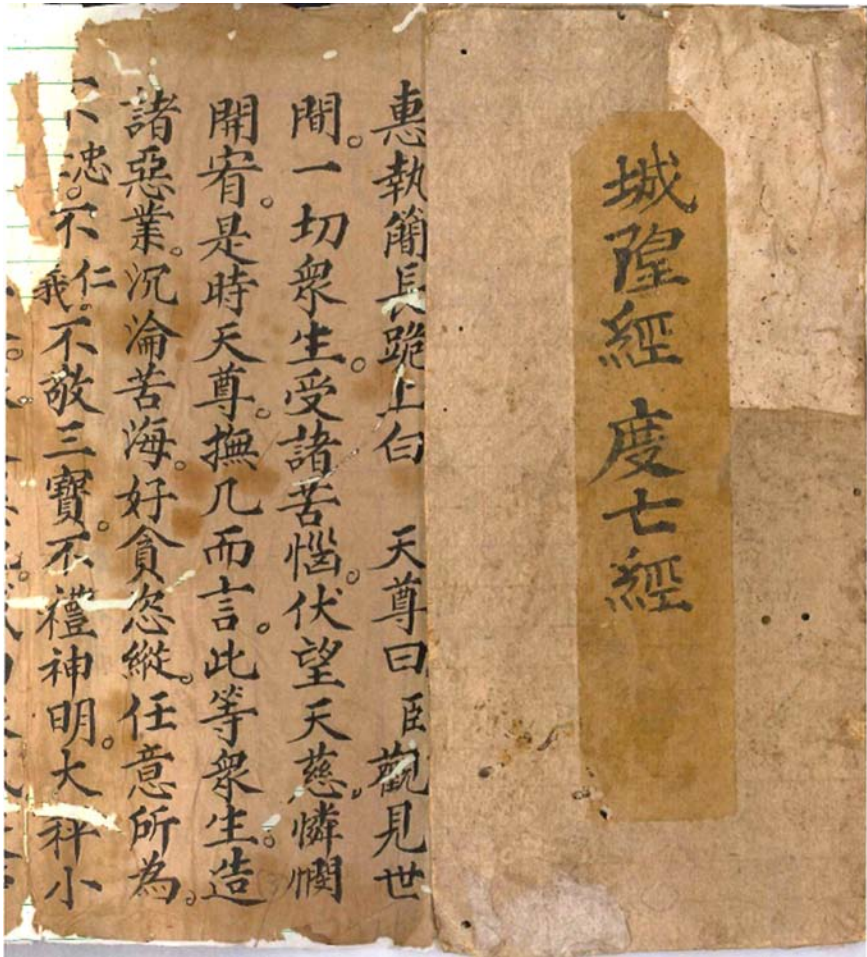 城隍經 度亡經
恵執簡長跪上白 天尊曰臣觀見世
間。一切衆生。受諸苦惱。伏望天慈。憐憫
開宥。是時天尊。撫几而言。此等衆生。造
諸惡業。沉淪苦海。好貪恣縱。任意所為。
不忠。不仁。義不敬三寶。不禮神明。大秤小